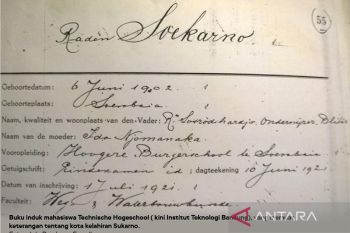 55
Raden Soekarno.
Geboortedatum: 6 Juni 1902.
Geboorteplaats: Soerabaia
Naam, kwaliteit en woonplaats van den Vader: R. Sosrodihardjo, Onderwijzer, Blitar
Naam van de moeder: Ida Njomanaka
Vooropleiding: Hoogere Burgerschool te Soerabaia
Getuigschrift: Eindexamen id: dagteekening 10 Juni 1921
Datum van inschrijving: 1 Juli 1921.
Faculteit: Weg & Waterbouwkunde
Buku induk mahasiswa Technische Hogeschool ( kini Institut Teknologi Bandung),
keterangan tentang kota kelahiran Sukarno.
ANTARA